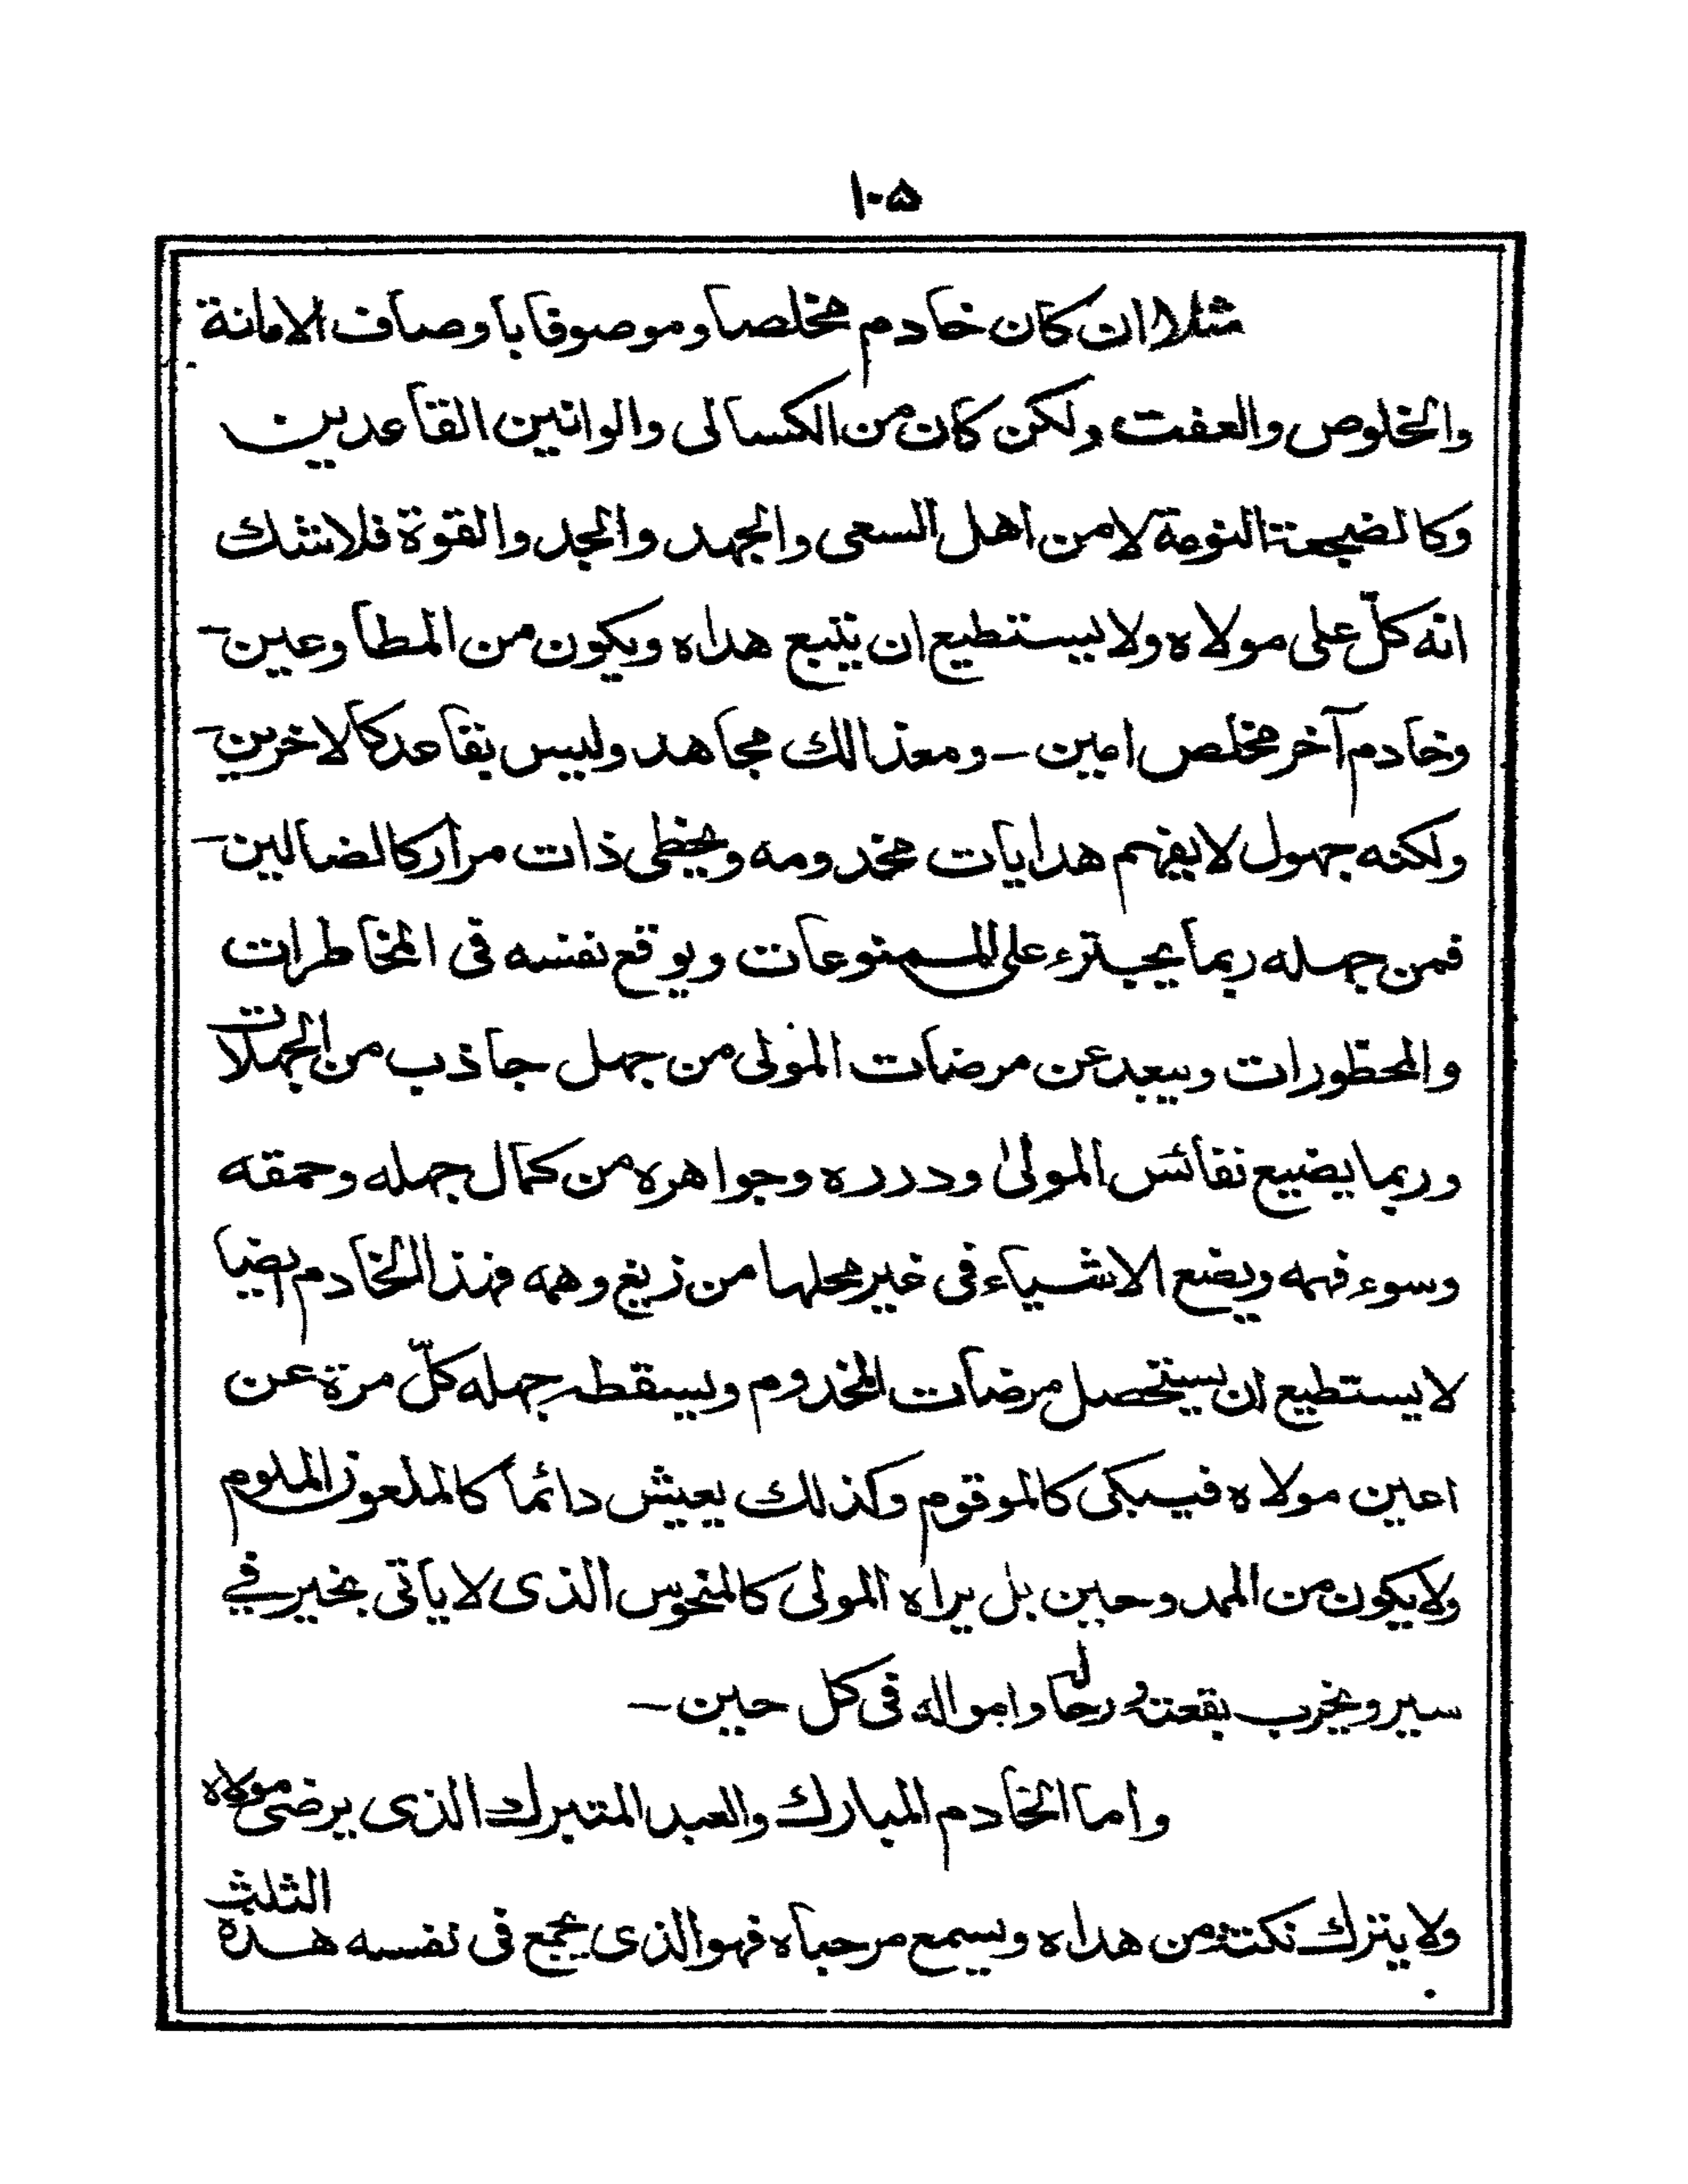 ۱۰۵
مثلا ان كان خادم مخلصا وموصوفا باوصاف الامانة
والخلوص والعفت ولكن كان من الكسالى والوانين القاعدين
وكالضجعة النومة لا من اهل السعى والجهد والجد والقوة فلا شك
انه كلّ على مولاه ولا يستطيع ان يتبع هداه ويكون من المطاوعين—
وخادم آخر مخلص امين — ومعذالك مجاهد وليس بقاعد كالاخرين—
ولكنه جهول لا يفهم هدايات مخدومه ويخطى ذات مرار كالضالين—
فمن جهله ربما يجترء على الممنوعات ويوقع نفسه فى المخاطرات
والمحظورات ويبعد عن مرضات المولى من جهل جاذب من الجهلات
وربما يضيع نفائس المولىٰ ودرره وجواهره من كمال جهله وحمقه
وسوء فهمه ويضع الاشياء فى غير محلها من زيغ وهمه فهذا الخادم ايضا
لا يستطيع ان يستحصل مرضات المخدوم ويسقطه جهله كلّ مرة عن
اعين مولاه فيبكى كالموقوم وكذلك يعيش دائما كالملعون الملوم
ولا يكون من الممدوحين بل يراه المولى كالمنحوس الذى لا ياتى بخير في
سير ويخرب بقعته ورحاله وامواله فى كل حين—
واما الخادم المبارك والعبد المتبرك الذى يرضى مولاه
ولا يترك نكتة من هداه ويسمع مرحباه فهو الذى يجمع فى نفسه هذه الثلث